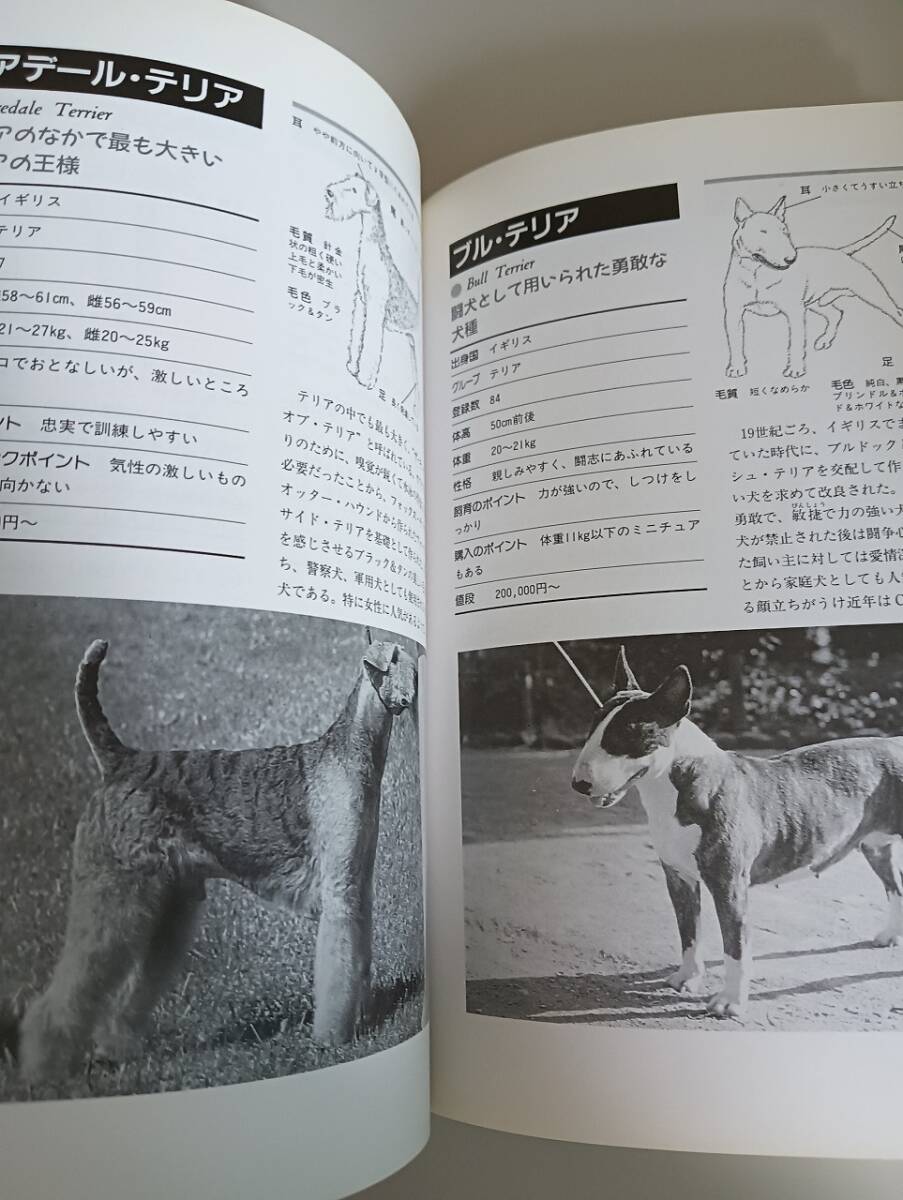 アデール・テリア
edale Terrier
アのなかで最も大きい
アの王様
イギリス
テリア
7
58〜61cm、雌56〜59cm
21〜27kg、雌20〜25kg
コでおとなしいが、激しいところ
ント 忠実で訓練しやすい
ックポイント 気性の激しいもの
向かない
円〜
耳 やや前方に向いて
毛質 針金
状の粗く硬い
上毛と柔かい
下毛が密生
毛色 ブラ
ック&タン
足
テリアの中でも最も大きく、
オブ・テリア"と呼ばれている。
りのために、嗅覚が鋭くて
必要だったことから、
オッター・ハウンドから作られた
サイド・テリアを基礎として作られた
を感じさせるブラック&タンの
ち、警察犬、軍用犬としても
犬である。特に女性に人気がある
ブル・テリア
Bull Terrier
闘犬として用いられた勇敢な
犬種
出身国 イギリス
グループ テリア
登録数 84
体高 50cm前後
体重 20〜21kg
性格 親しみやすく、闘志にあふれている
飼育のポイント 力が強いので、しつけをし
っかり
購入のポイント 体重11kg以下のミニチュア
もある
値段 200,000円〜
耳 小さくてうすい立ち
足
毛質 短くなめらか
毛色 純白、黒
ブリンドル&ホ
ド&ホワイトな
19世紀ごろ、イギリスでさ
ていた時代に、ブルドックと
シュ・テリアを交配して作
い犬を求めて改良された。
びんしょう
勇敢で、敏捷で力の強い犬
犬が禁止された後は闘争心
た飼い主に対しては愛情深
とから家庭犬としても人
る顔立ちがうけ近年はC